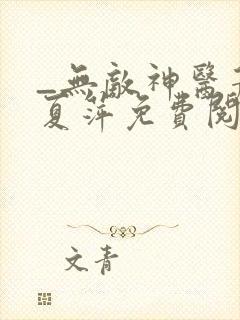 _無敵神醫
夏萍免費閱
文青